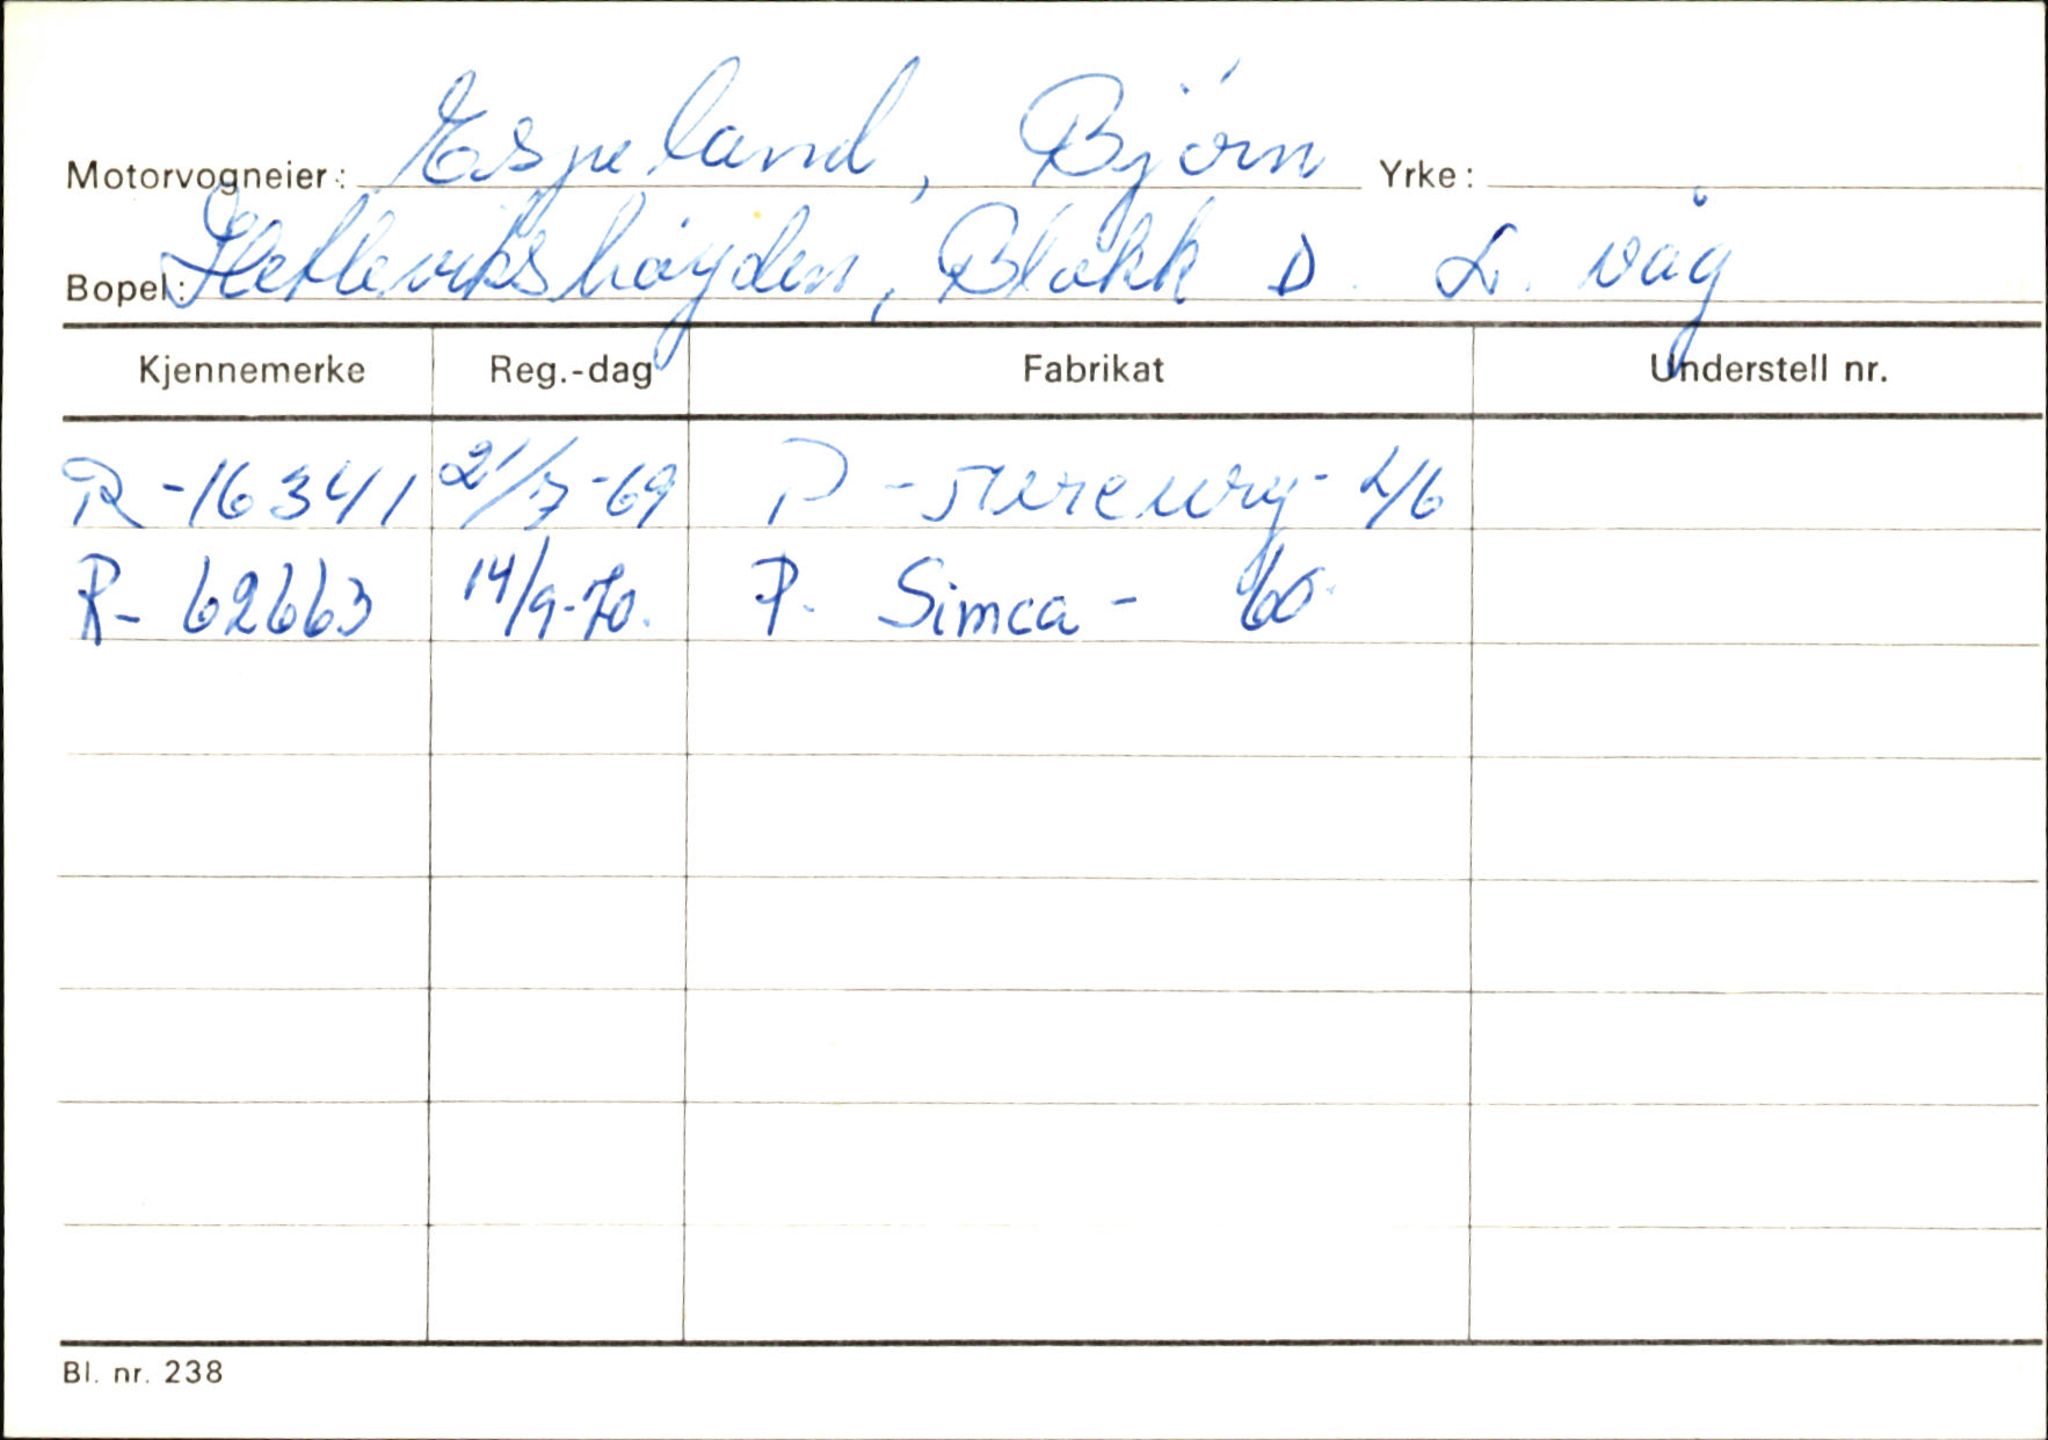 Motorvogneier: Espeland, Bjørn Yrke:
Bopel: Hetlevikshøyden, Blokk D. L. våg
Kjennemerke Reg.-dag Fabrikat Understell nr.
R-16341 21/7-69 P-Mercury-46
R-62663 14/9-70. P. Simca - 60.
Bl. nr. 238